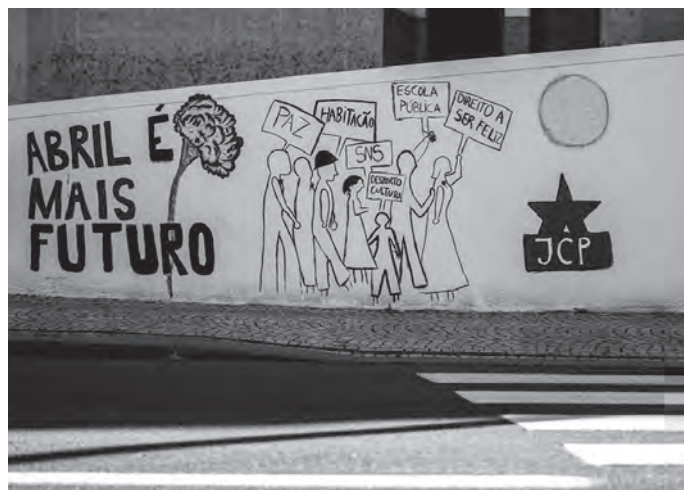 ABRIL É
MAIS
FUTURO
PAZ
HABITAÇÃO
SNS
DESPORTO
CULTURA
ESCOLA
PÚBLICA
DIREITO A
SER FELIZ
JCP